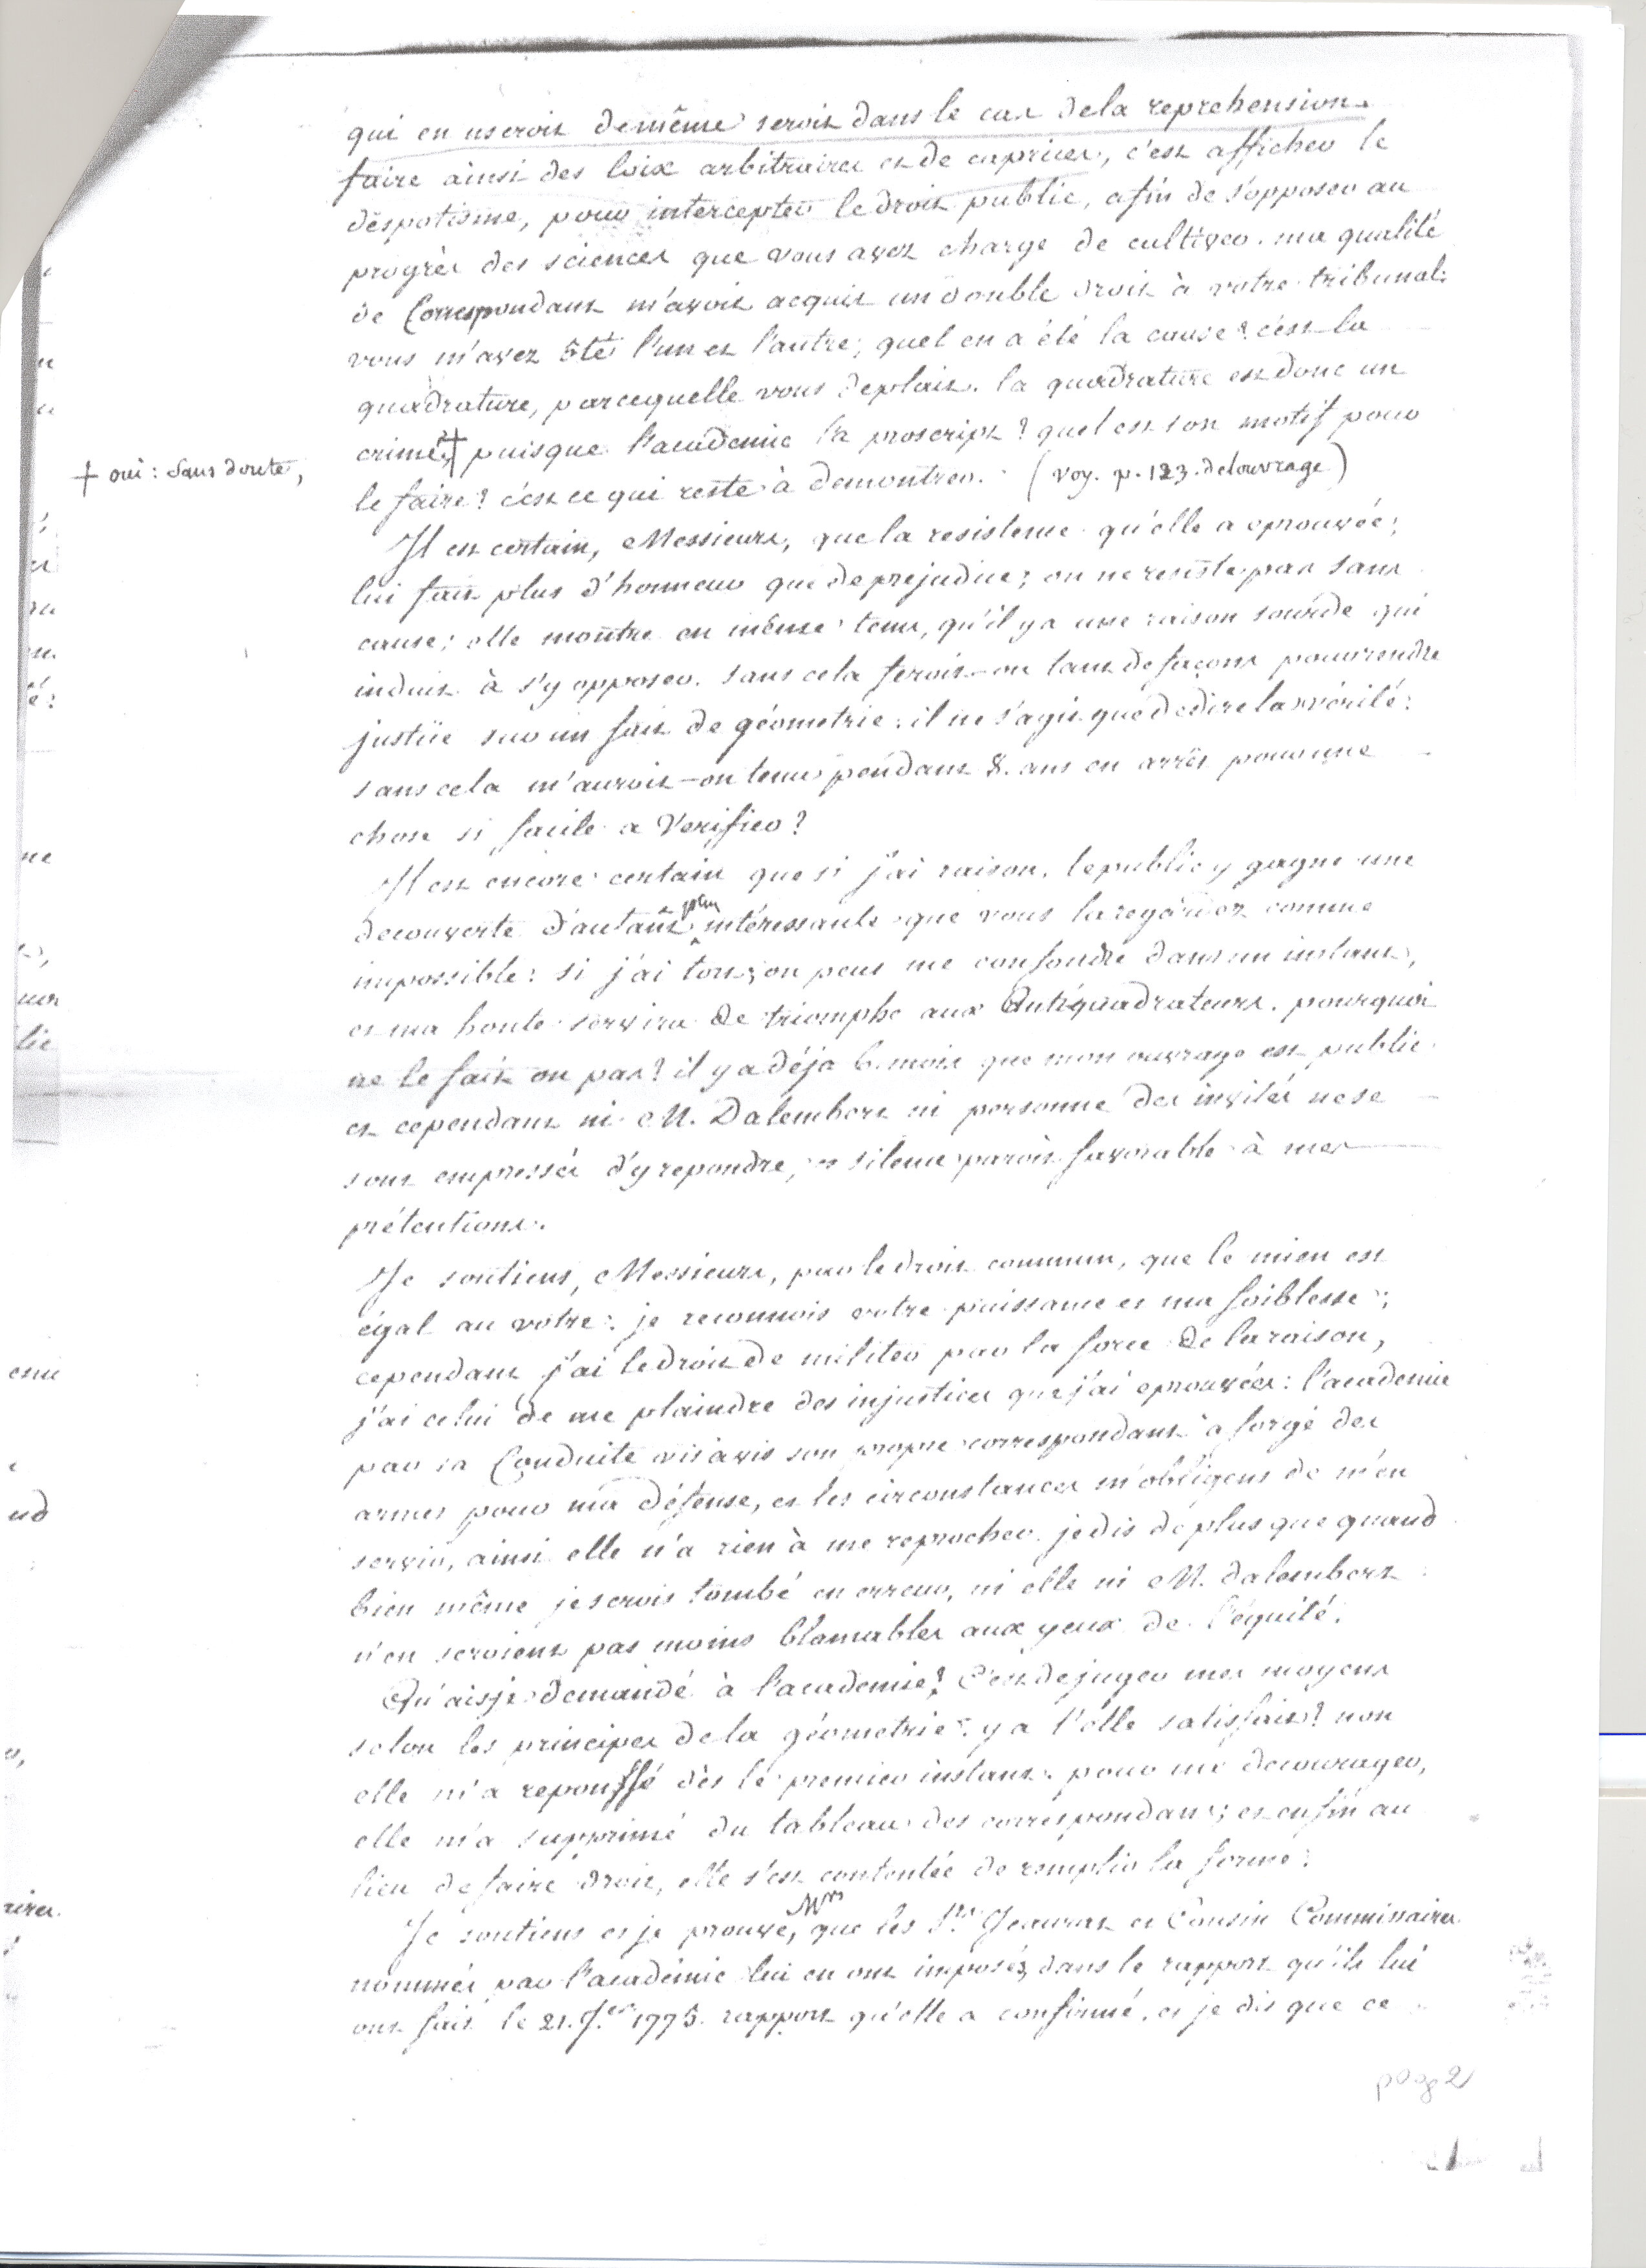 qui en useroit de même seroit dans le cas de la reprehension.
faire ainsi des loix arbitraires et de caprices, c'est afficher le
despotisme, pour intercepter le droit public, afin de s'opposer au
progrès des sciences que vous avez charge de cultiver. ma qualité
de Correspondant m'avoit acquis un double droit à votre tribunal:
vous m'avez ôté l'un et l'autre; quel en a été la cause? c'est la
quadrature, parcequelle vous deplait. la quadrature est donc un
crime, + puisque l'academie l'a proscript? quel est son motif pour
+ oui: sans doute,
le faire? c'est ce qui reste à demontrer. (voy. p. 123. de louvrage)
Il est certain, Messieurs, que la resistence qu'elle a eprouvée;
lui fait plus d'honneur que de prejudice; on ne resiste pas sans
cause; elle montre en même tems, qu'il y a une raison sourde qui
induit à s'y opposer. sans cela feroit-on tant de façons pour rendre
justice sur un fait de géometrie: il ne s'agit que de dire la vérité:
sans cela m'auroit-on tenu pendant 8. ans en arrêt pour une
chose si facile a Verifier?
Il est encore certain que si j'ai raison, le public y gagne une
decouverte d'autant plus intéressante que vous la regardiez comme
impossible: si j'ai tort, on peut me confondre dans un instant,
et ma honte servira de triomphe aux Antiquadrateurs. pourquoi
ne le fait on pas? il y a déja 6. mois que mon ouvrage est public
et cependant ni M. Dalembert ni personne des invités ne se
sont empressés d'y repondre, ce silence paroît favorable à mes
prétentions.
Je soutiens, Messieurs, par le droit commun, que le mien est
égal au votre: je reconnois votre puissance et ma foiblesse;
cependant j'ai le droit de militer par la force de la raison,
j'ai celui de me plaindre des injustices que j'ai eprouvées: l'academie
par sa Conduite vis à vis son propre correspondant a forgé des
armes pour ma défense, et les circonstances m'obligent de m'en
servir, ainsi elle n'a rien à me reprocher. je dis de plus que quand
bien même je serois tombé en erreur, ni elle ni M. dalembert
n'en seroient pas moins blamables aux yeux de l'équité.
Qu'aisje demandé à l'academie? C'est de juger mes moyens
selon les principes de la géometrie: y a t'elle satisfait? non
elle m'a repoussé dès le premier instant. pour me decourager,
elle m'a supprimé du tableau des correspondans; et enfin au
lieu de faire droit, elle s'est contentée de remplir la forme:
Je soutiens et je prouve, Mrs que les Srs. Jeaurat et Cousin Commissaires
nommés par l'académie lui en ont imposés dans le rapport qu'ils lui
ont fait le 21. Jer 1775. rapport qu'elle a confirmé. et je dis que ce
pag 2